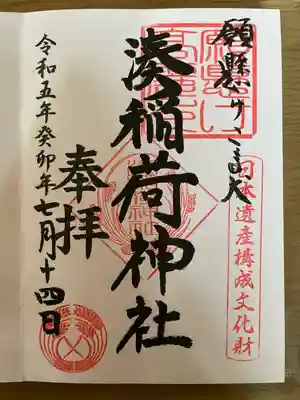 願懸けこま犬
願懸け
高麗犬
日本遺産構成文化財
湊稲荷神社
奉拝
令和五年癸卯年七月十四日